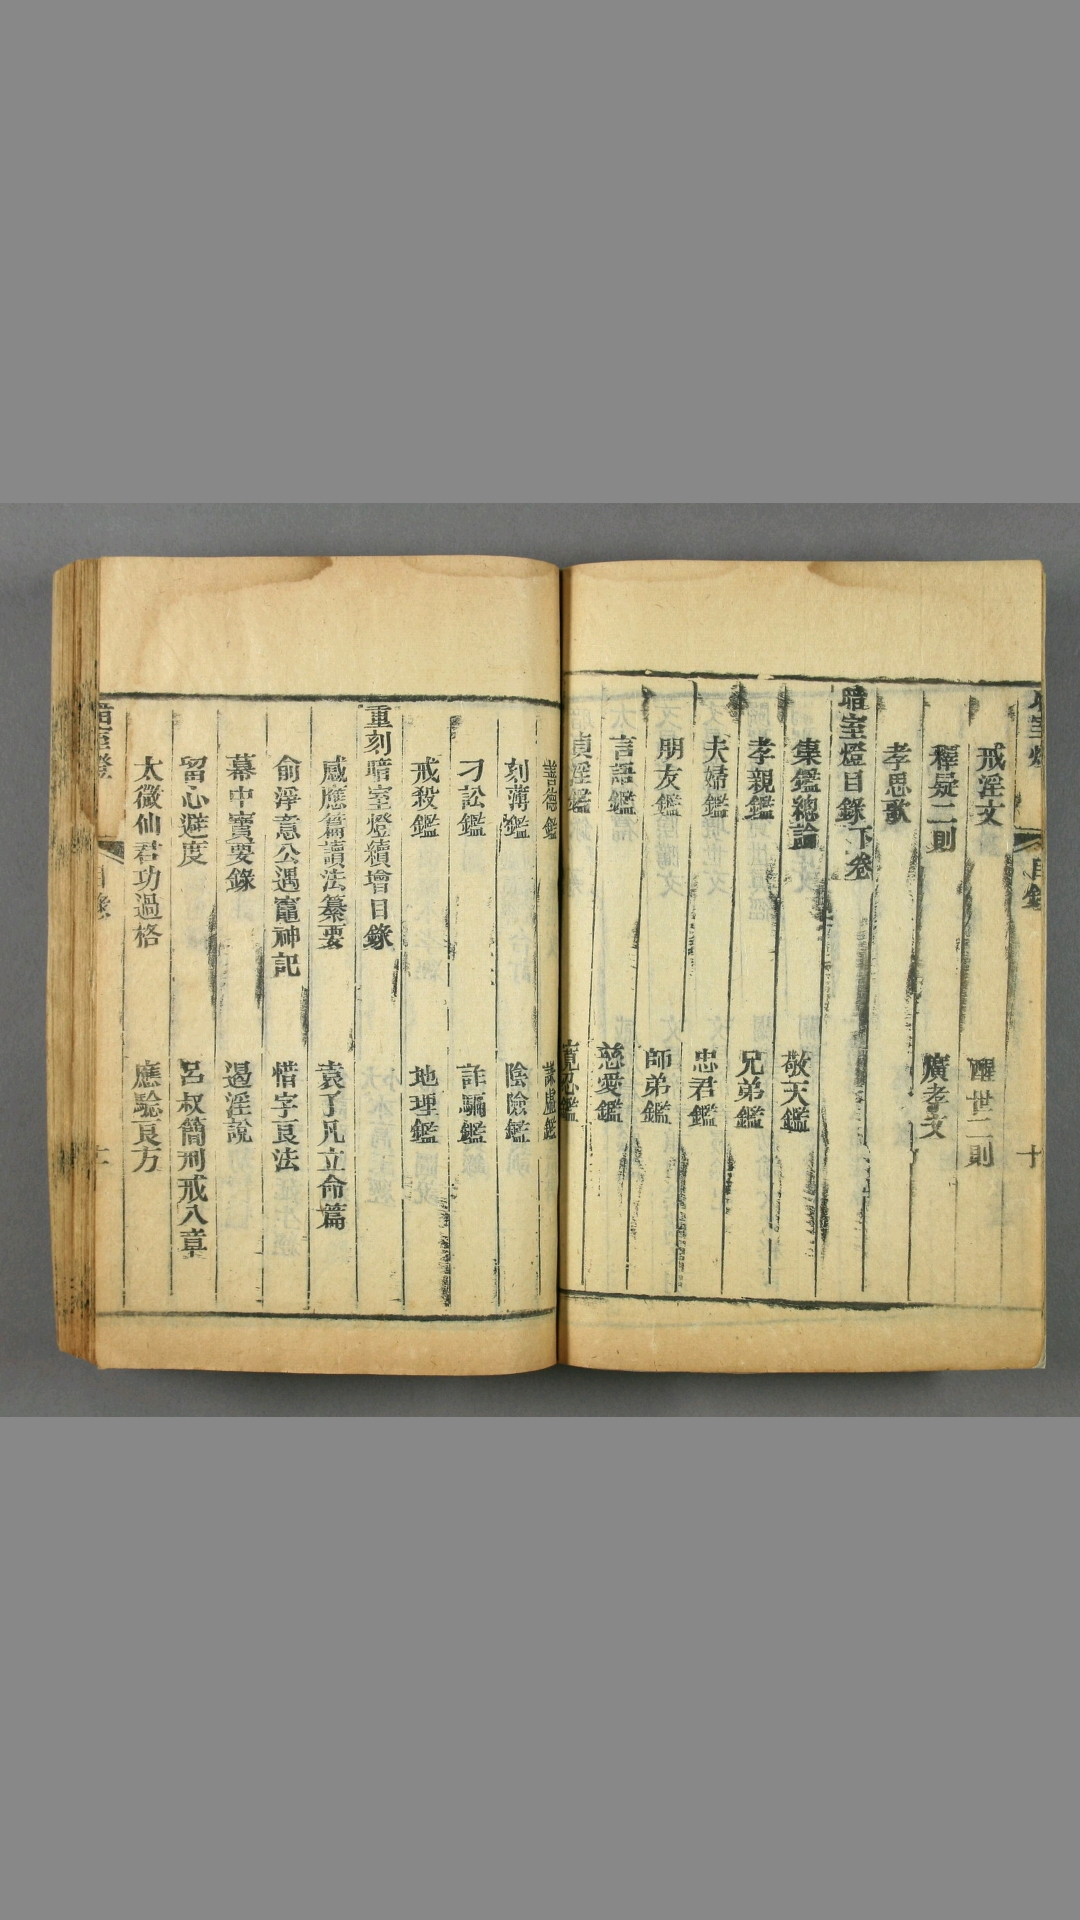 目錄
十
戒淫文　醒世二則
釋疑二則　廣孝文
孝思歌
暗室燈目錄下卷
集鑑總論　敬天鑑
孝親鑑　兄弟鑑
夫婦鑑　忠君鑑
朋友鑑　師弟鑑
言語鑑　慈愛鑑
貞淫鑑　寬忍鑑
謙虛鑑
刻薄鑑　陰險鑑
刁訟鑑　詐騙鑑
戒殺鑑　地理鑑
重刻暗室燈續增目錄
感應篇讀法纂要　袁了凡立命篇
俞淨意公遇竈神記　惜字良法
幕中寶要錄　遏淫說
留心避度　呂叔簡刑戒八章
太微仙君功過格　應驗良方